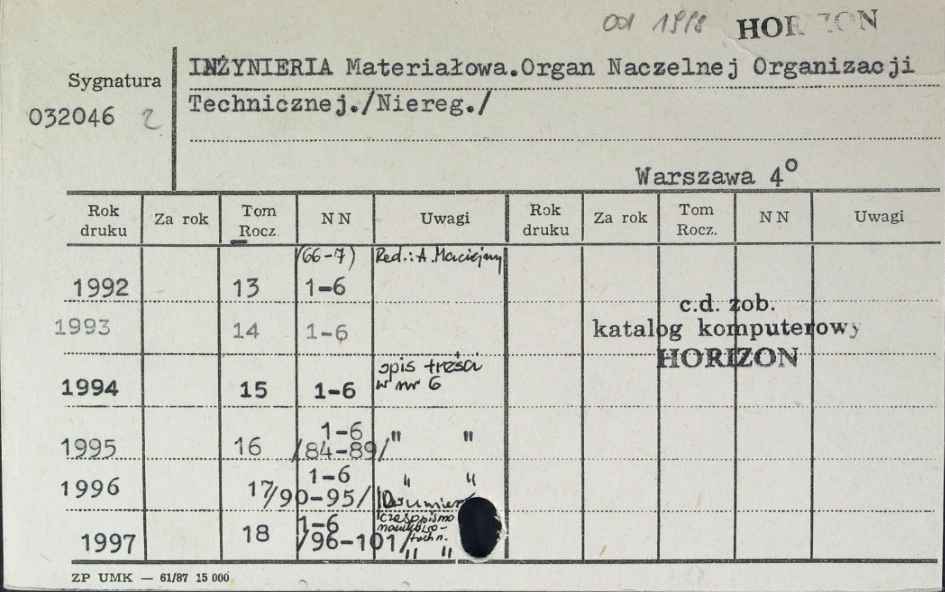 od 1998 HORIZON
INŻYNIERIA Materiałowa.Organ Naczelnej Organizacji
Sygnatura
Technicznej./Niereg./
032046 2
Warszawa 4º
Rok druku Za rok Tom Rocz. NN Uwagi Rok druku Za rok Tom Rocz. NN Uwagi
(66-7) Red.: A. Maciejny
1992 13 1-6
c.d. zob.
1993 14 1-6 katalog komputerowy
HORIZON
opis treści
1994 15 1-6 w nr 6
1-6
1995 16 /84-89/ " "
1-6 " "
1996 17 /90-95/
1-6 czasopismo
naukowo-
1997 18 /96-101/ techn.
" "
ZP UMK — 61/87 15 000